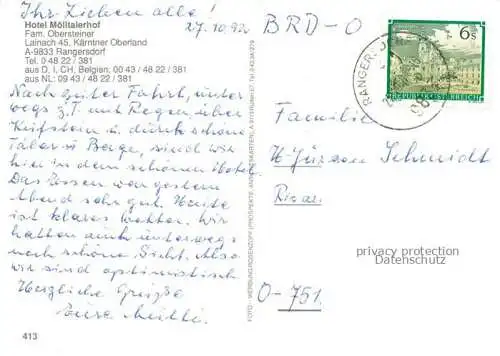 Ihr Lieben alle!
27.10.92
Hotel Mölltalerhof
Fam. Obersteiner
Lainach 45, Kärntner Oberland
A-9833 Rangersdorf
Tel. 0 48 22 / 381
aus D, I, CH, Belgien: 00 43 / 48 22 / 381
aus NL: 09 43 / 48 22 / 381
Nach guter Fahrt, unter
wegs z.T. mit Regen, über
Kufstein u. durch schöne
Täler u. Berge, sind wir
hier in dem schönen Hotel.
Das Essen war gestern
Abend sehr gut. Heute
ist klares Wetter. Wir
hatten auch unterwegs
noch schöne Sicht. Also
wir sind optimistisch
Herzliche Grüße
Eure
413
BRD-O
6s
REPUBLIK ÖSTERREICH
Familie
H-Jürgen Schmidt
O-751
privacy protection
Datenschutz